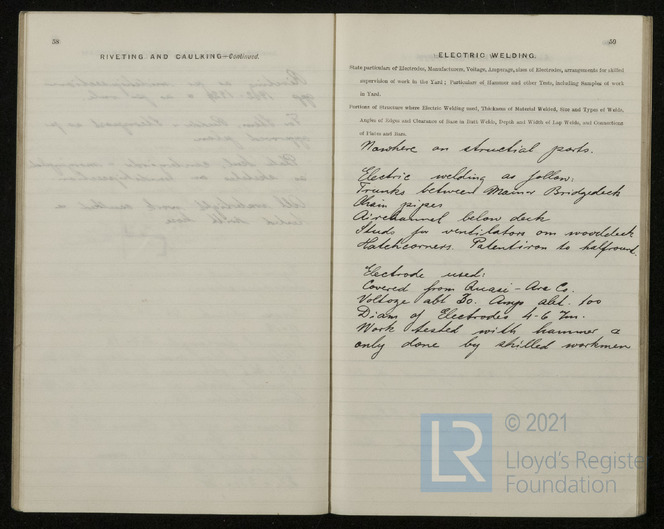 58
RIVETING AND CAULKING—Continued.
59
ELECTRIC WELDING.
State particulars of Electrodes, Manufacturers, Voltage, Amperage, sizes of Electrodes, arrangements for skilled
supervision of work in the Yard; Particulars of Hammer and other Tests, including Samples of work
in Yard.
Portions of Structure where Electric Welding used, Thickness of Material Welded, Size and Types of Welds,
Angles of Edges and Clearance of Bars in Butt Welds, Depth and Width of Lap Welds, and Connections
of Plates and Bars.
Nowhere on structial parts.
Electric welding as follow:
Trunks between Bridgedeck
pipes
Airchannel below deck
Studs for ventilators on wooddeck
Hatchcorners. Patentiron to halfround.
Electrode used:
Covered from Quasi-Arc Co.
Voltage abt 30. Amps abt. 100
Diam of Electrodes 4-6 m.
Work tested with hammer &
only done by skilled workmen
LR
© 2021
Lloyd's Register
Foundation